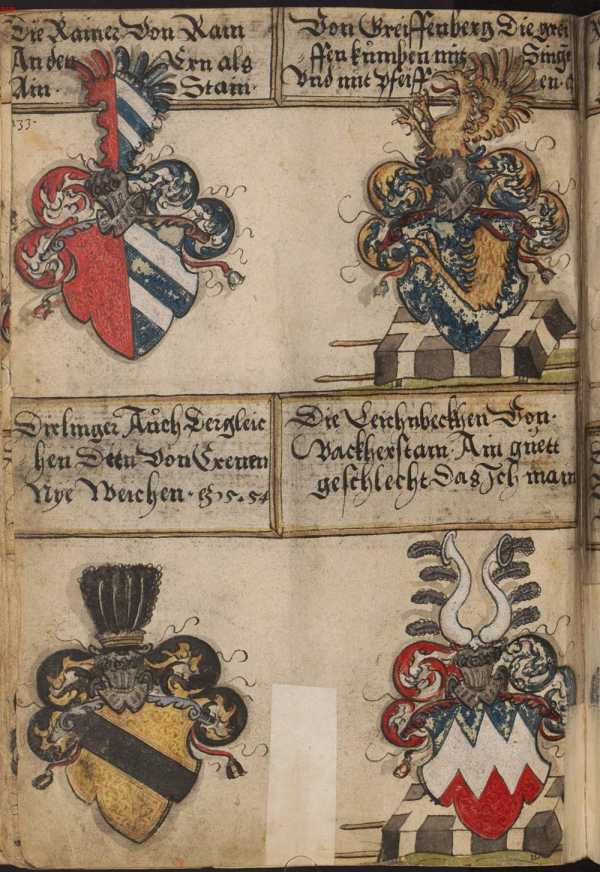 Die Rainer Von Rain
An den Ern als
Ain Stain
Von Greiffenberg Die grei
ffen kůmben mit Singe
Vnd mit Pfeiff en
133.
Dirlinger Aůch Dergleic
hen Den Von Erenen
Nye Weichen
Die Leichnbeckhen Von
Vackherstain Ain guett
geschlecht Das Ich main